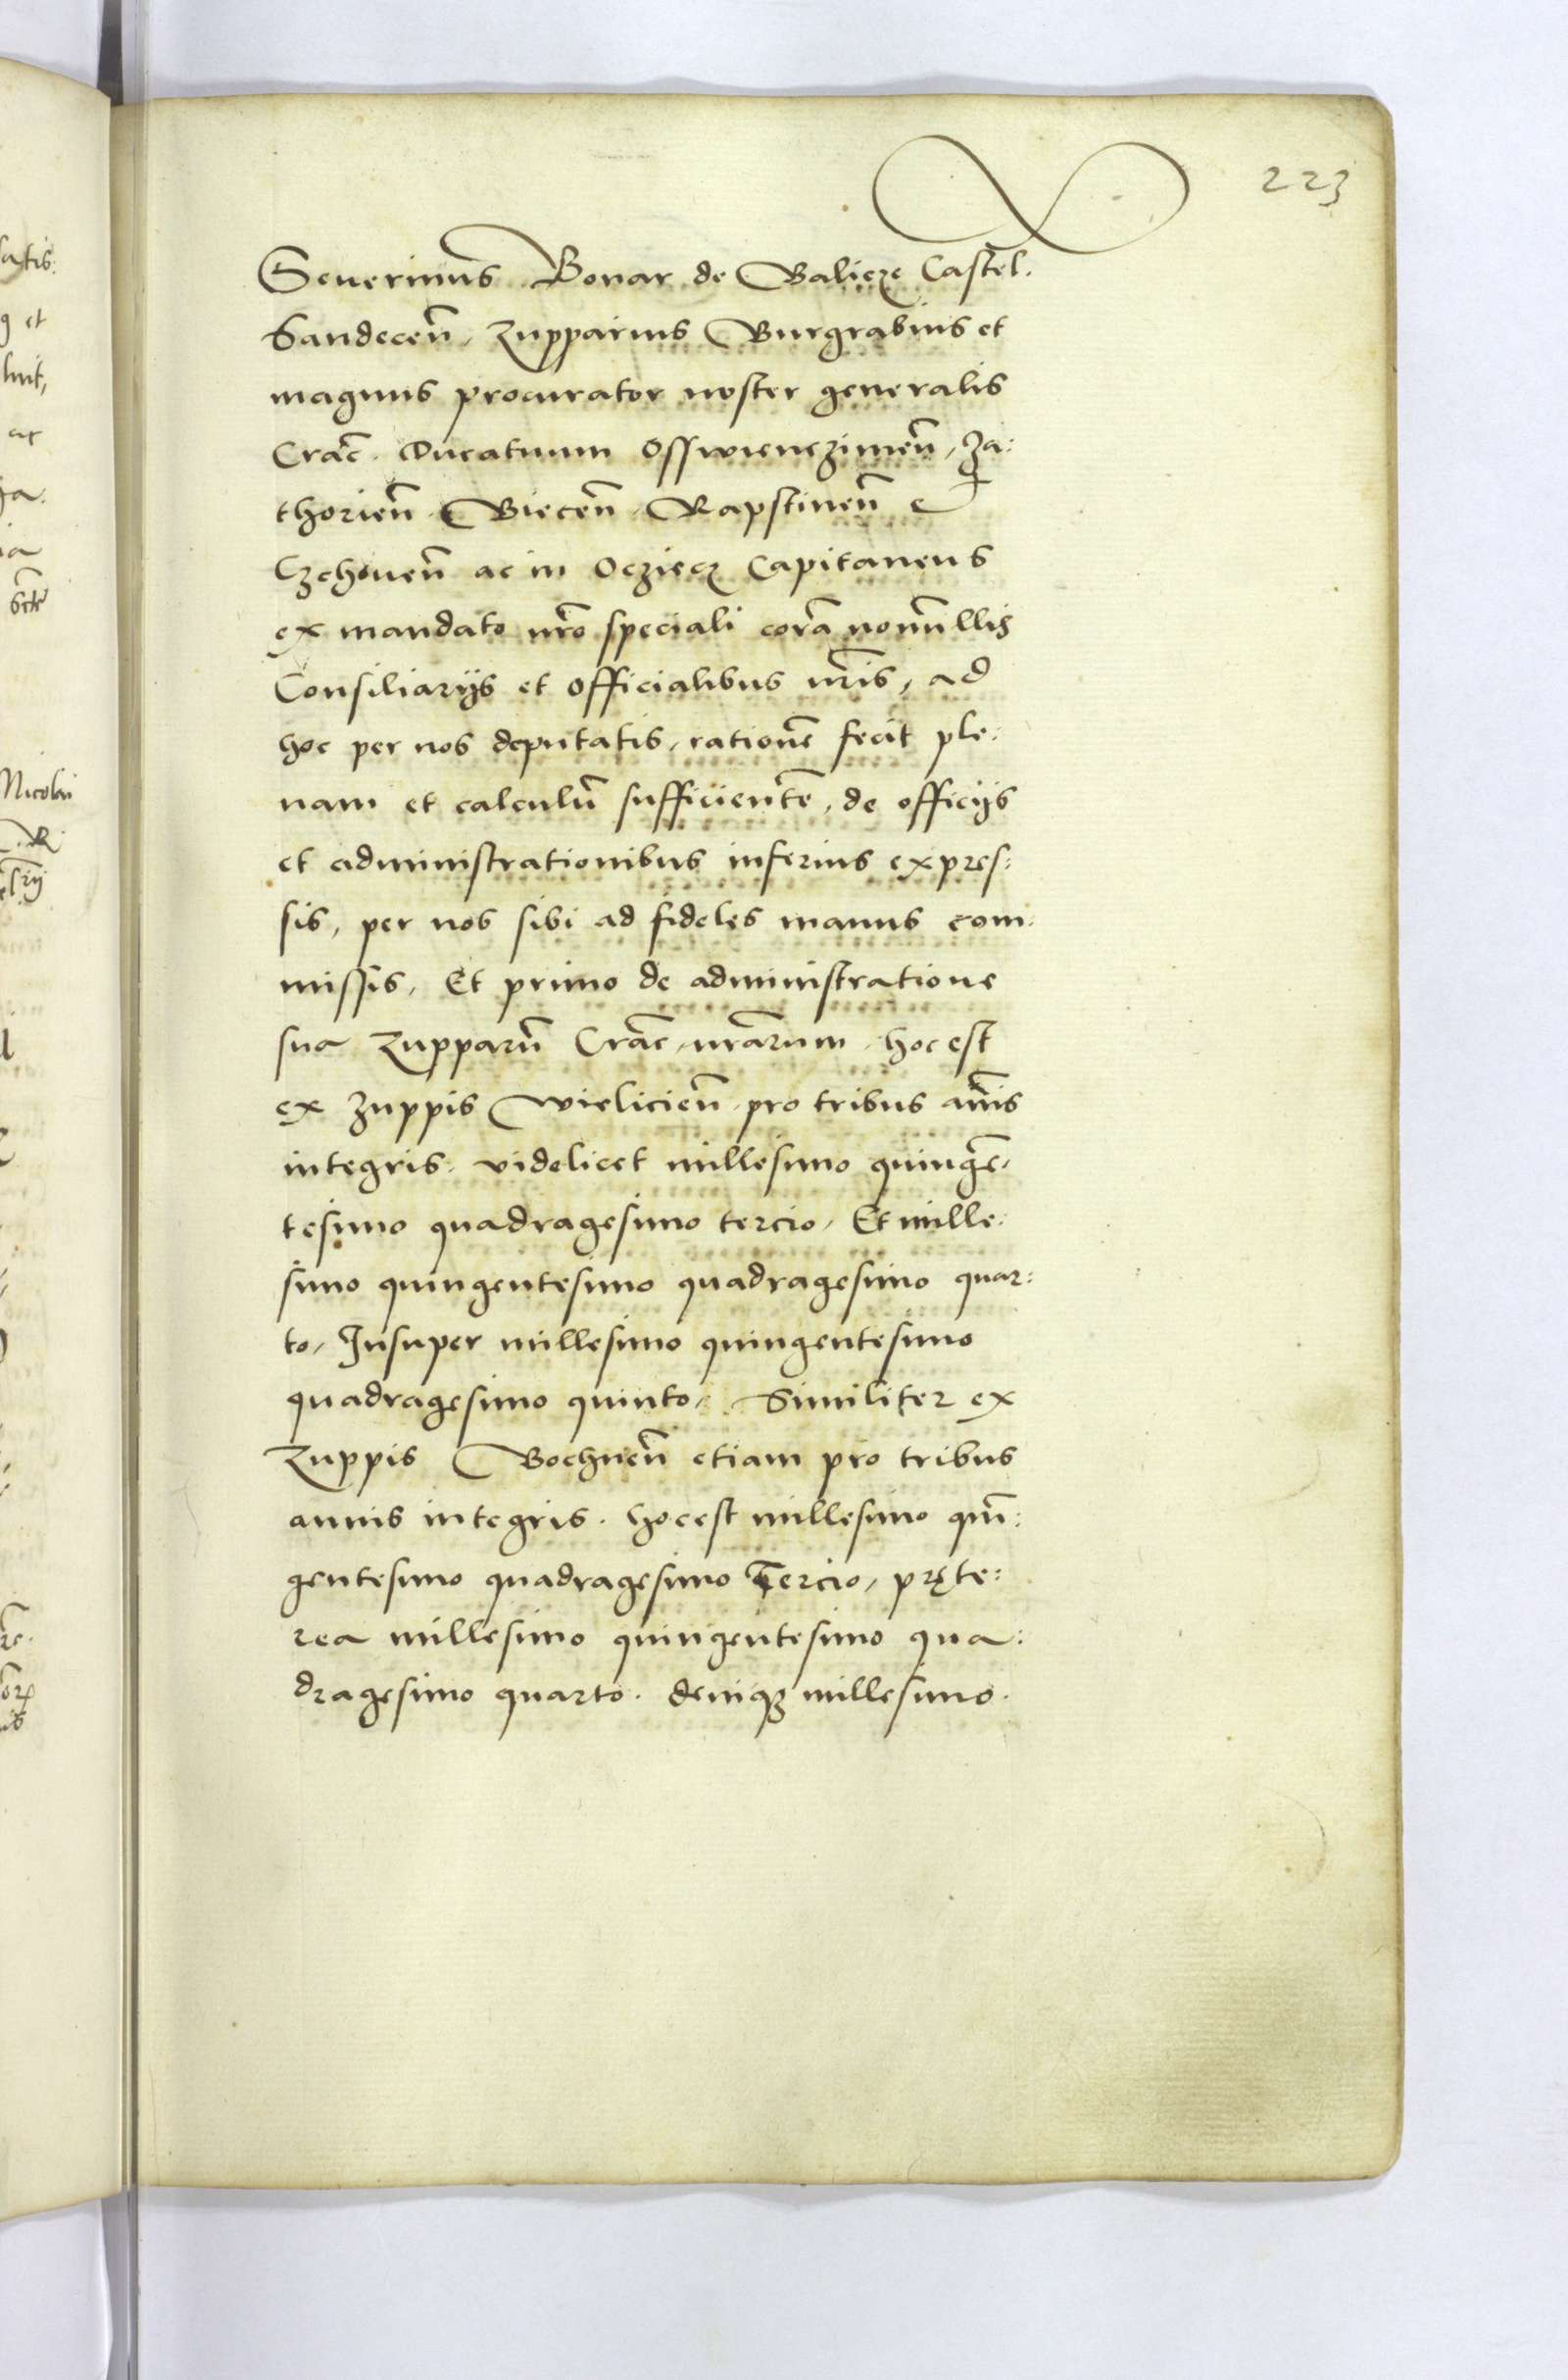 223
Seuerinus Bonar de Balicze Castel.
Sandecen̄, Zupparius Burgrabius et
magnus procurator noster generalis
Crac̄. Ducatuum Osswienczimen̄, Za:
thorien̄ Biecen̄ Rapstinen̄
Czchouen̄ ac in Ocziecz Capitaneus
ex mandato nr̄o speciali corā nonnūllis
Consiliarijs et officialibus nr̄is, ad
hoc per nos deputatis, rationē fecit ple:
nam et calculū sufficientē, de officijs
et administrationibus inferius expres:
sis, per nos sibi ad fideles manus com:
missis, Et primo de administratione
sua Zupparū Crac̄, nr̄arum, hoc est
ex Zuppis Wielicien̄, pro tribus ann̄is
integris, videlicet millesimo quingē,
tesimo quadragesimo tercio, Et mille:
simo quingentesimo quadragesimo quar:
to, Insuper millesimo quingentesimo
quadragesimo quinto, Similiter ex
Zuppis Bochnen̄ etiam pro tribus
annis integris. hoc est millesimo quin̄:
gentesimo quadragesimo Tercio, pręte:
rea millesimo quingentesimo qua:
dragesimo quarto. deniqȝ millesimo.